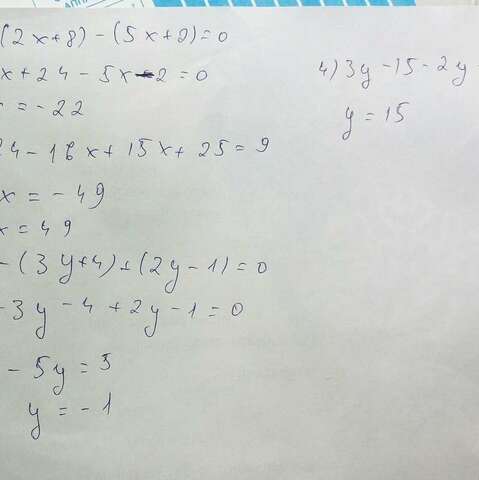 (2x+8)-(5x+2)=0
x+24-5x-2=0
=-22
24-16x+15x+25=9
x=-49
x=49
-(3y+4)+(2y-1)=0
-3y-4+2y-1=0
-5y=5
y=-1
4)3y-15-2y
y=15